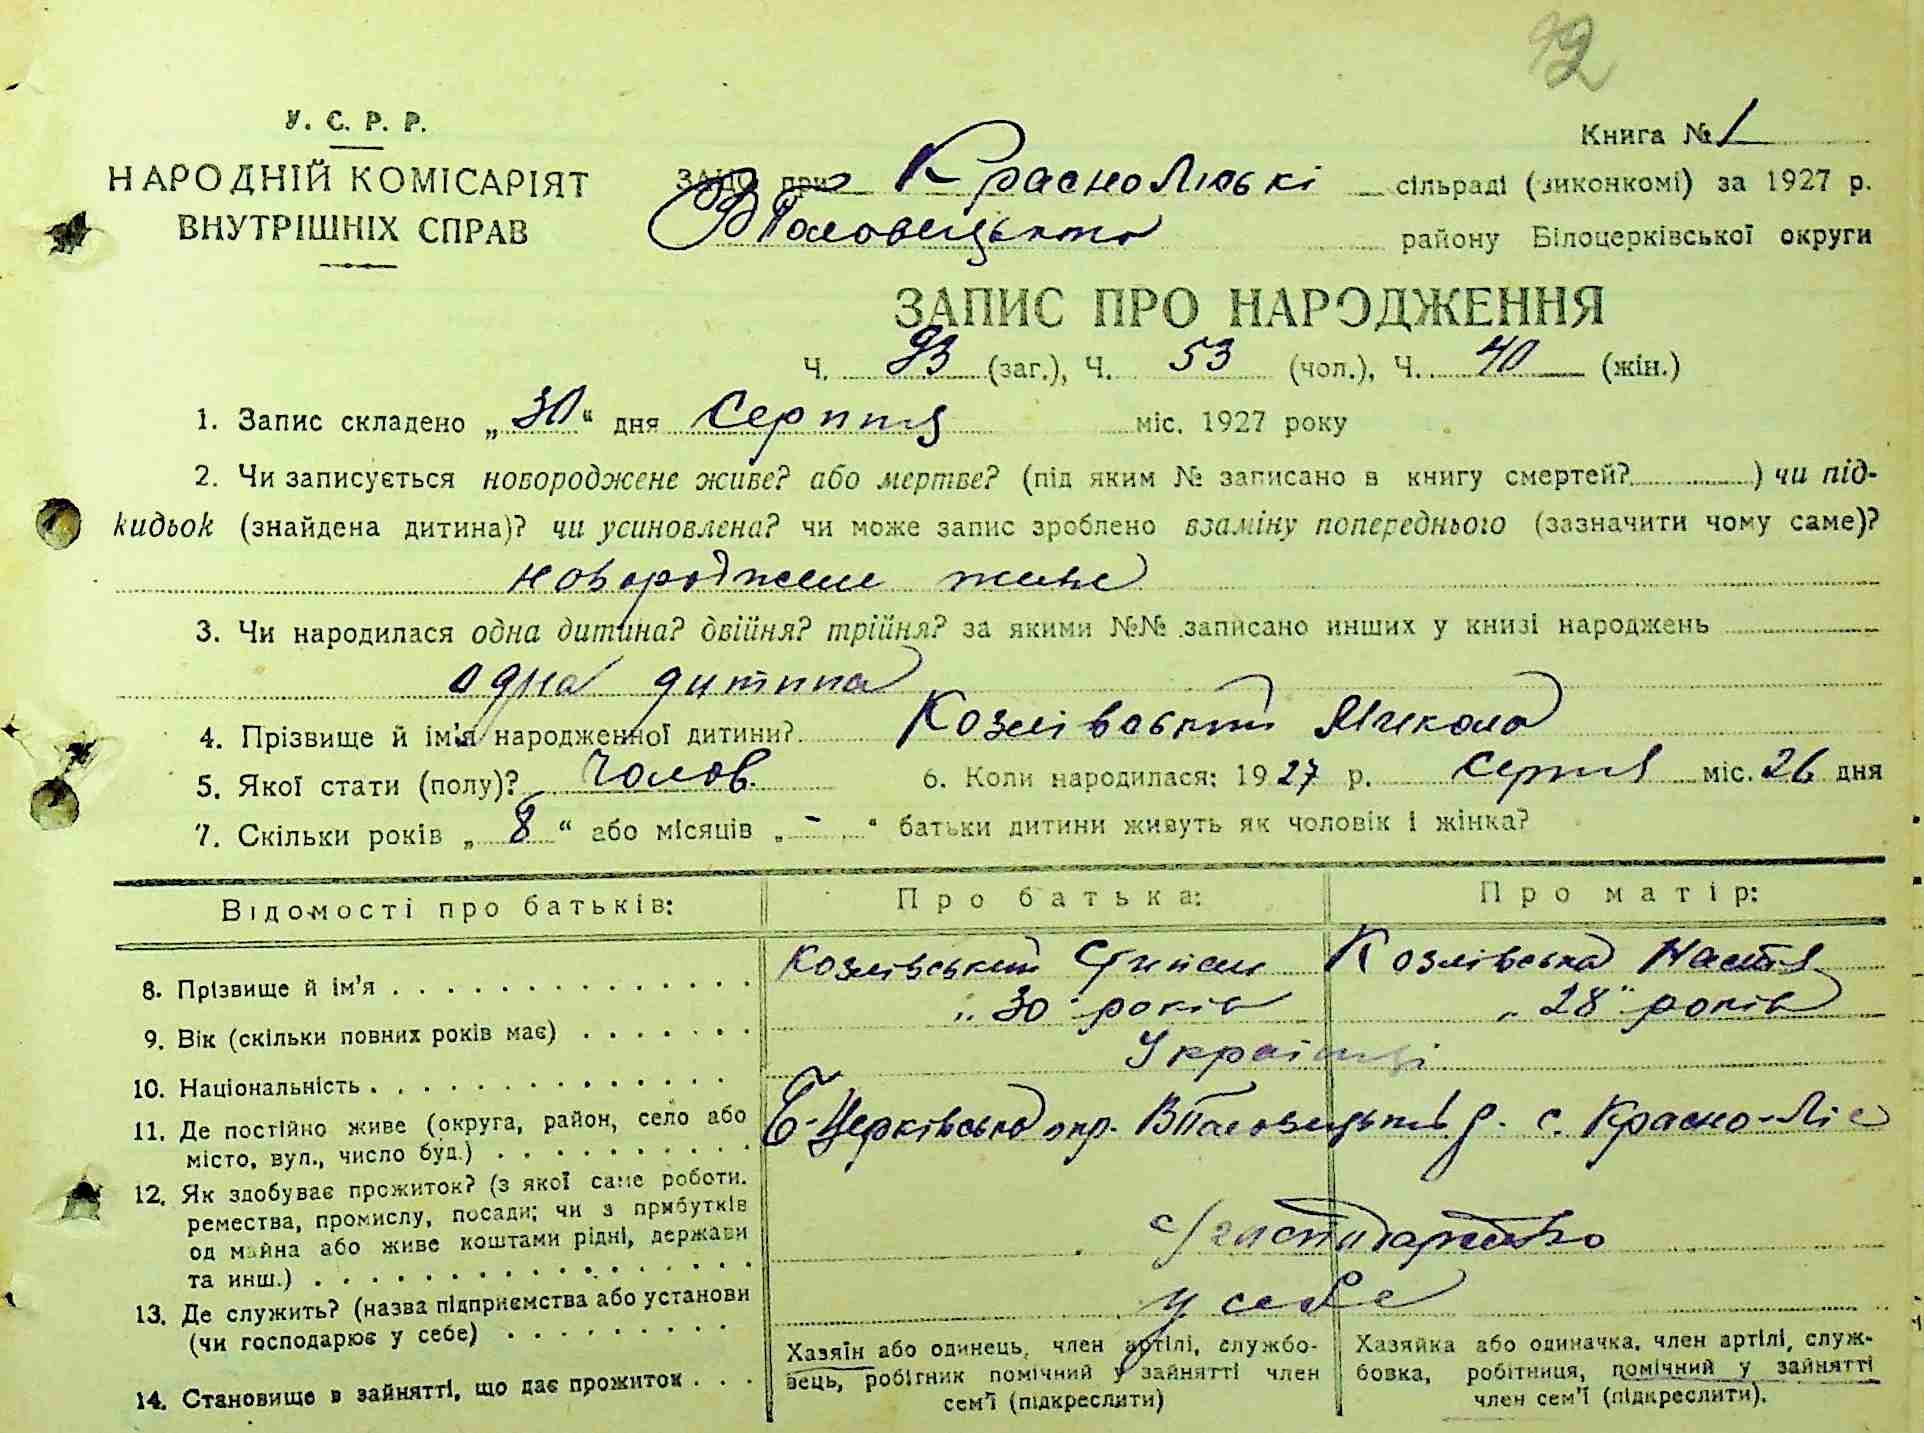 92
У. С. Р. Р.
НАРОДНІЙ КОМІСАРІЯТ
ВНУТРІШНІХ СПРАВ
Книга № 1
ЗАЦС при Краснолюські сільраді (виконкомі) за 1927 р.
району Білоцерківської округи
ЗАПИС ПРО НАРОДЖЕННЯ
Ч. 93 (заг.), Ч. 53 (чол.), Ч. 40 (жін.)
1. Запис складено „30“ дня Серпня міс. 1927 року
2. Чи записується новороджене живе? або мертве? (під яким № записано в книгу смертей? ) чи під-
кидьок (знайдена дитина)? чи усиновлена? чи може запис зроблено взаміну попереднього (зазначити чому саме)?
новороджене живе
3. Чи народилася одна дитина? двійня? трійня? за якими №№ записано инших у книзі народжень
одна дитина
4. Прізвище й ім'я народженної дитини? Козлівський Микола
5. Якої стати (полу)? Чолов. 6. Коли народилася: 1927 р. серпня міс. 26 дня
7. Скільки років „8“ або місяців „-“ батьки дитини живуть як чоловік і жінка?
Відомості про батьків: Про батька: Про матір:
8. Прізвище й ім'я Козлівський Степан Козлівська Настя
9. Вік (скільки повних років має) „30“ років „28“ років
10. Національність Українці
11. Де постійно живе (округа, район, село або
місто, вул., число буд.) Б-Церківська окр. р. с. Красно-Ліс
12. Як здобуває прожиток? (з якої саме роботи.
ремества, промислу, посади; чи з прибутків
од майна або живе коштами рідні, держави
та инш.) с/господарство
13. Де служить? (назва підприємства або установи
(чи господарює у себе) у себе
14. Становище в зайнятті, що дає прожиток
Хазяїн або одинець, член артілі, службо-
вець, робітник помічний у зайнятті член
сем'ї (підкреслити)
Хазяйка або одиначка, член артілі, служ-
бовка, робітниця, помічний у зайнятті
член сем'ї (підкреслити).